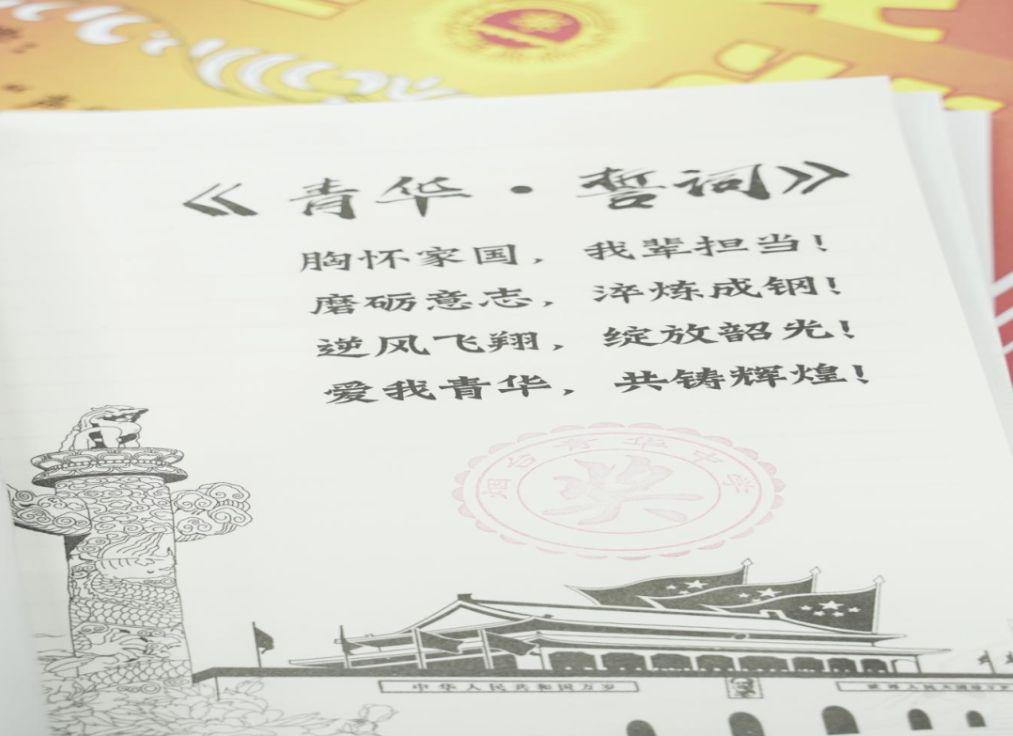 《青华·誓词》
胸怀家国，我辈担当！
磨砺意志，淬炼成钢！
逆风飞翔，绽放韶光！
爱我青华，共铸辉煌！
烟台青华中学
中华人民共和国万岁